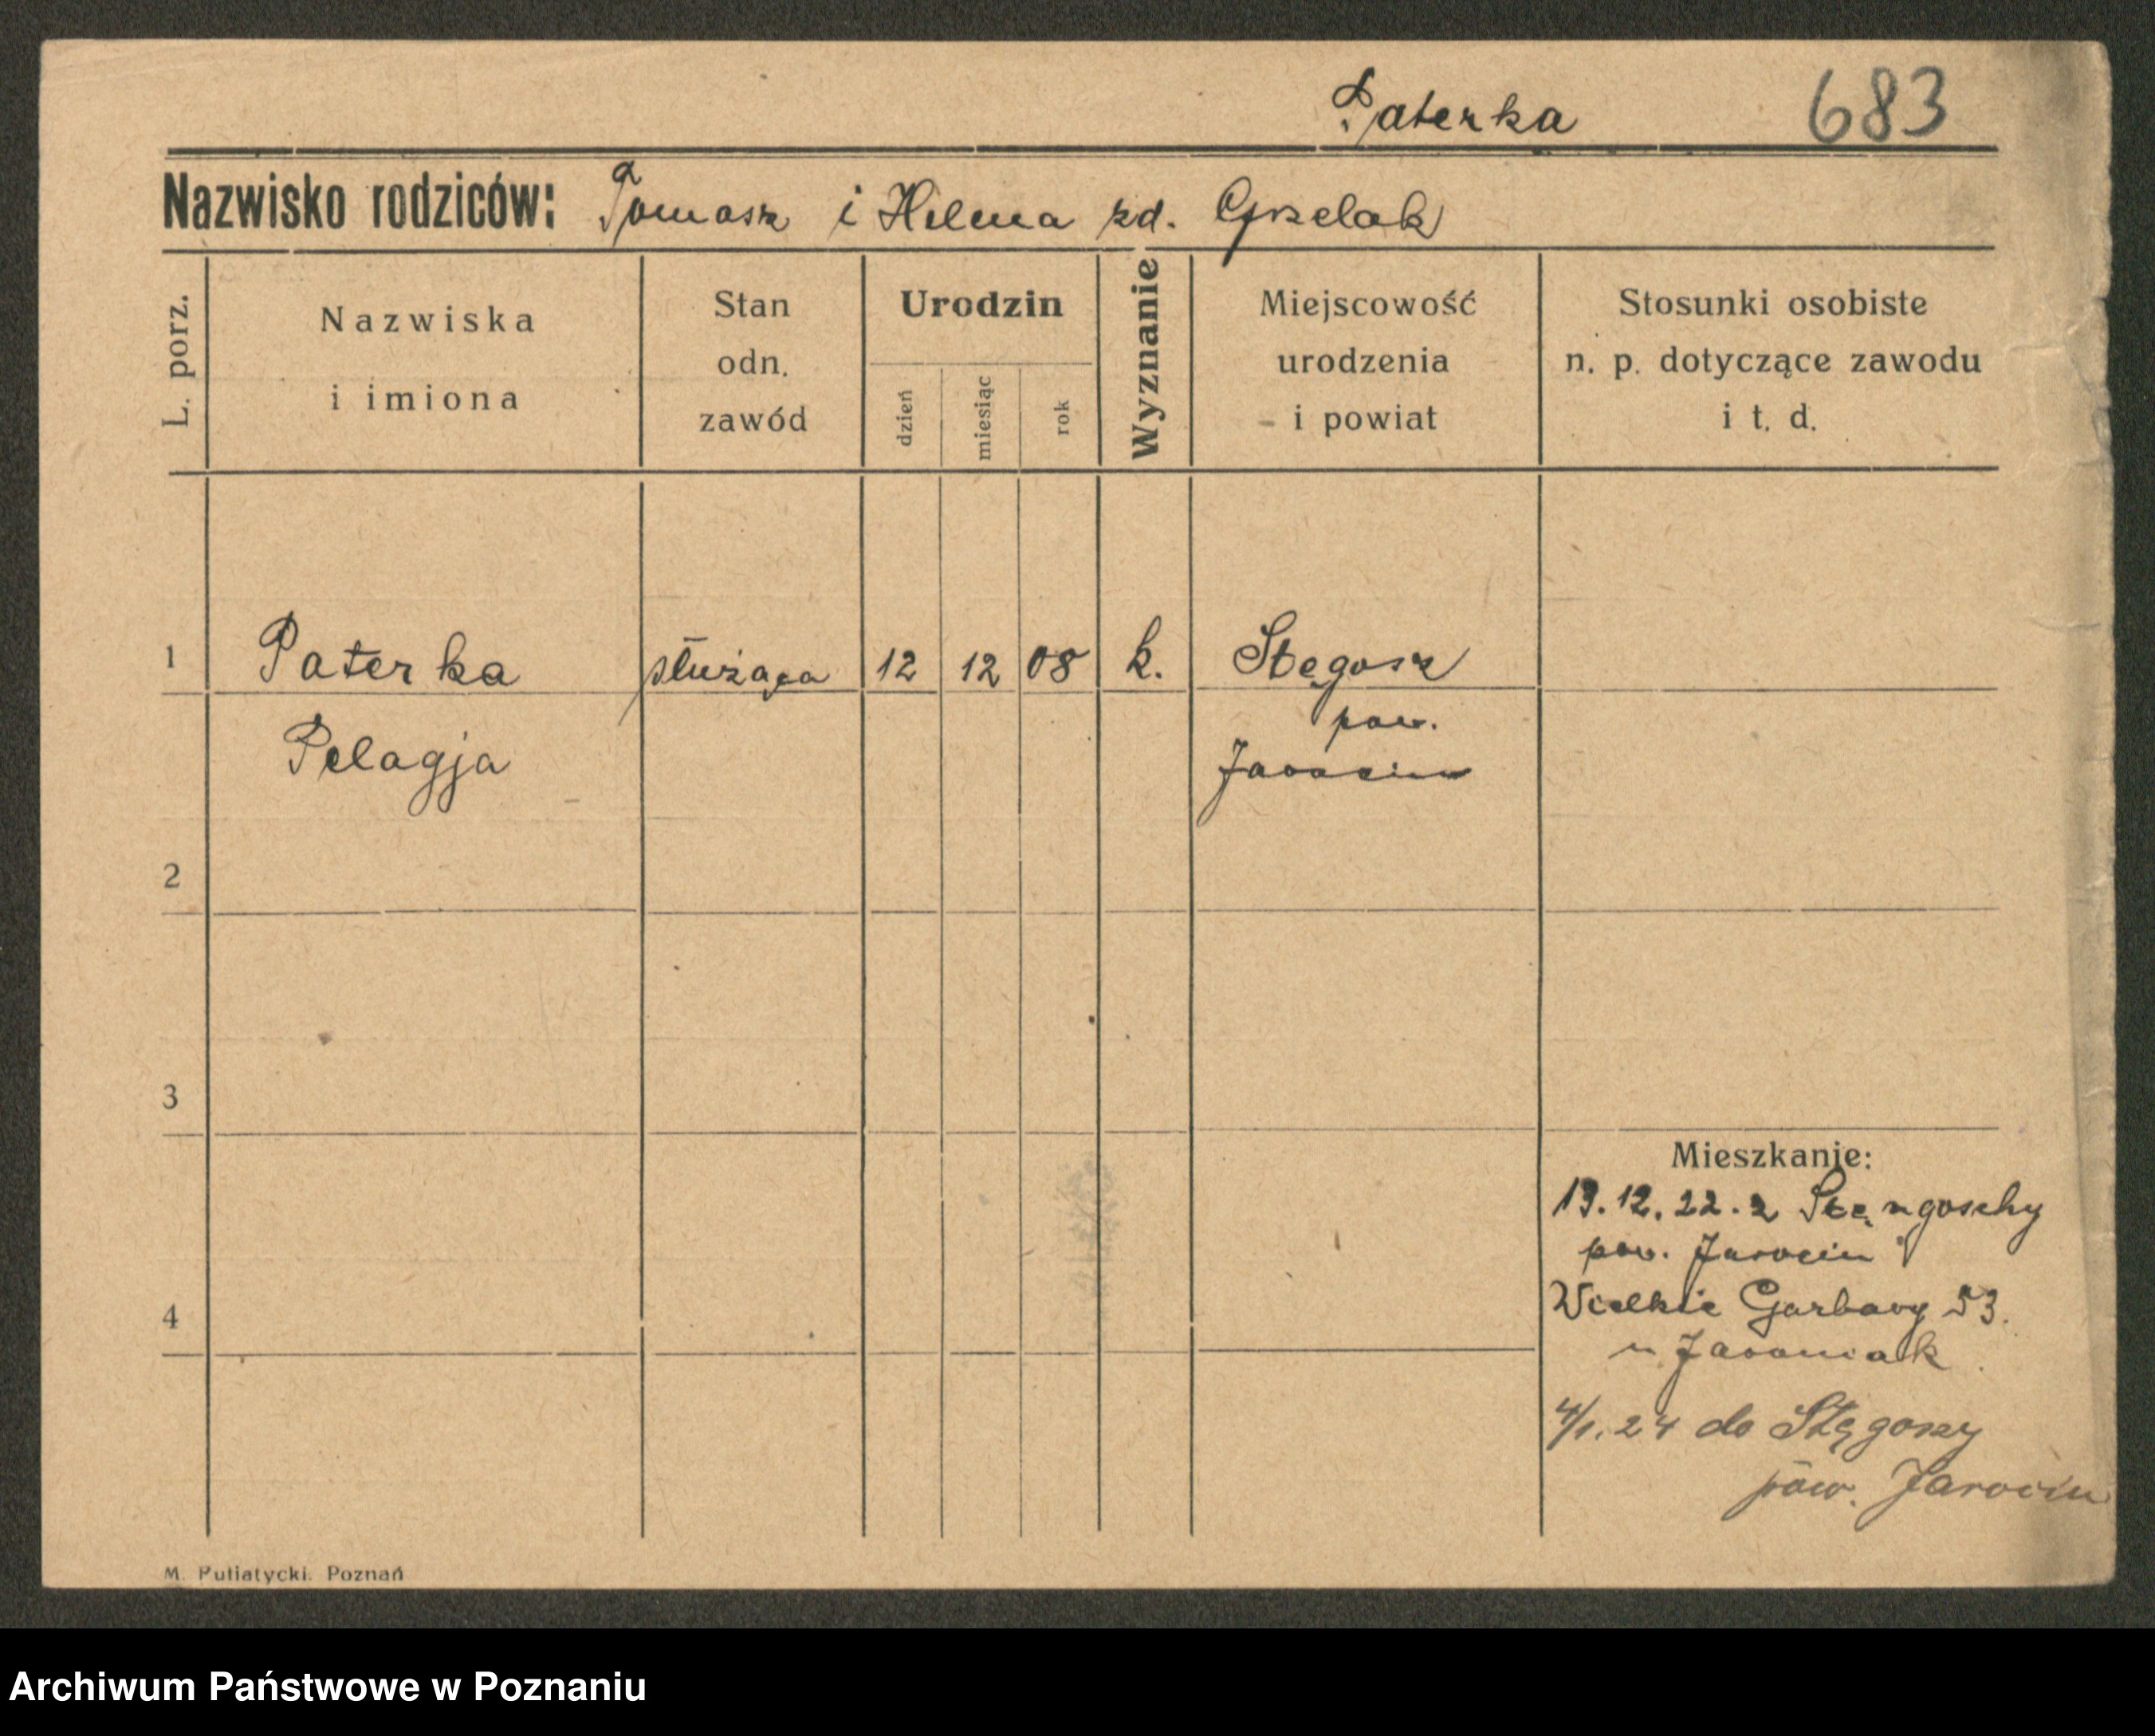 Paterka 683
Nazwisko rodziców: Tomasz i Helena zd. Grzelak
L. porz.
Nazwiska
i imiona
Stan
odn.
zawód
Urodzin
dzień
miesiąc
rok
Wyznanie
Miejscowość
urodzenia
i powiat
Stosunki osobiste
n. p. dotyczące zawodu
i t. d.
1 Paterka służąca 12 12 08 k. Stęgosz
pow.
Pelagja Jarocin
2
3
Mieszkanie:
19.12.22. z Stęngoschy
pow. Jarocin
4 Wielkie Garbary 53.
u
4/1.24 do Stęgoszy
pow. Jarocin
M. Putiatycki. Poznań
Archiwum Państwowe w Poznaniu